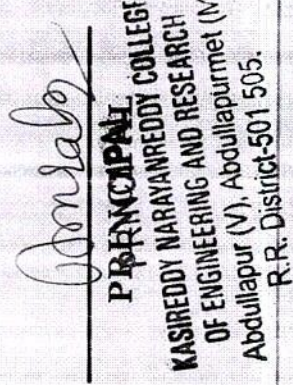 PRINCIPAL
KASIREDDY NARAYANREDDY COLLEGE
OF ENGINEERING AND RESEARCH
Abdullapur (V), Abdullapurmet (M
R.R. District-501 505.